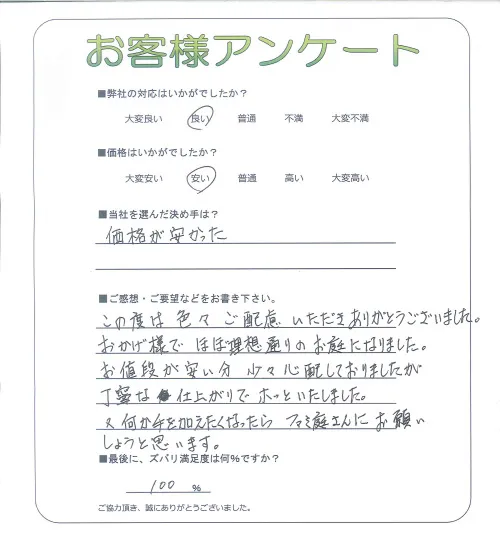 お客様アンケート
■弊社の対応はいかがでしたか?
大変良い 良い 普通 不満 大変不満
■価格はいかがでしたか?
大変安い 安い 普通 高い 大変高い
■当社を選んだ決め手は?
価格が安かった
■ご感想・ご要望などをお書き下さい。
この度は 色々 ご配慮 いただきありがとうございました。
おかげ様で ほぼ理想通りのお庭になりました。
お値段が安い分 少々心配しておりましたが
丁寧な 仕上がりでホッといたしました。
又何か手を加えたくなったら ファミ庭さんにお願い
しようと思います。
■最後に、ズバリ満足度は何%ですか?
100 %
ご協力頂き、誠にありがとうございました。